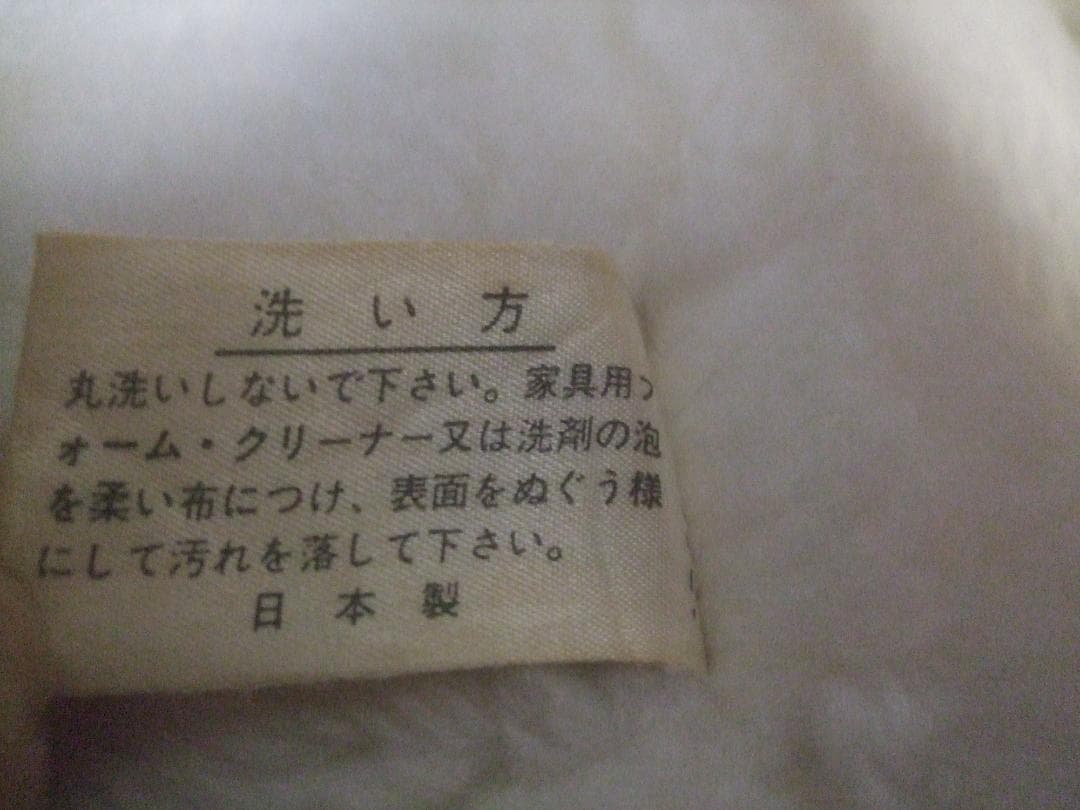 洗い方
丸洗いしないで下さい。家具用フ
ォーム・クリーナー又は洗剤の泡
を柔い布につけ、表面をぬぐう様
にして汚れを落して下さい。
日本製